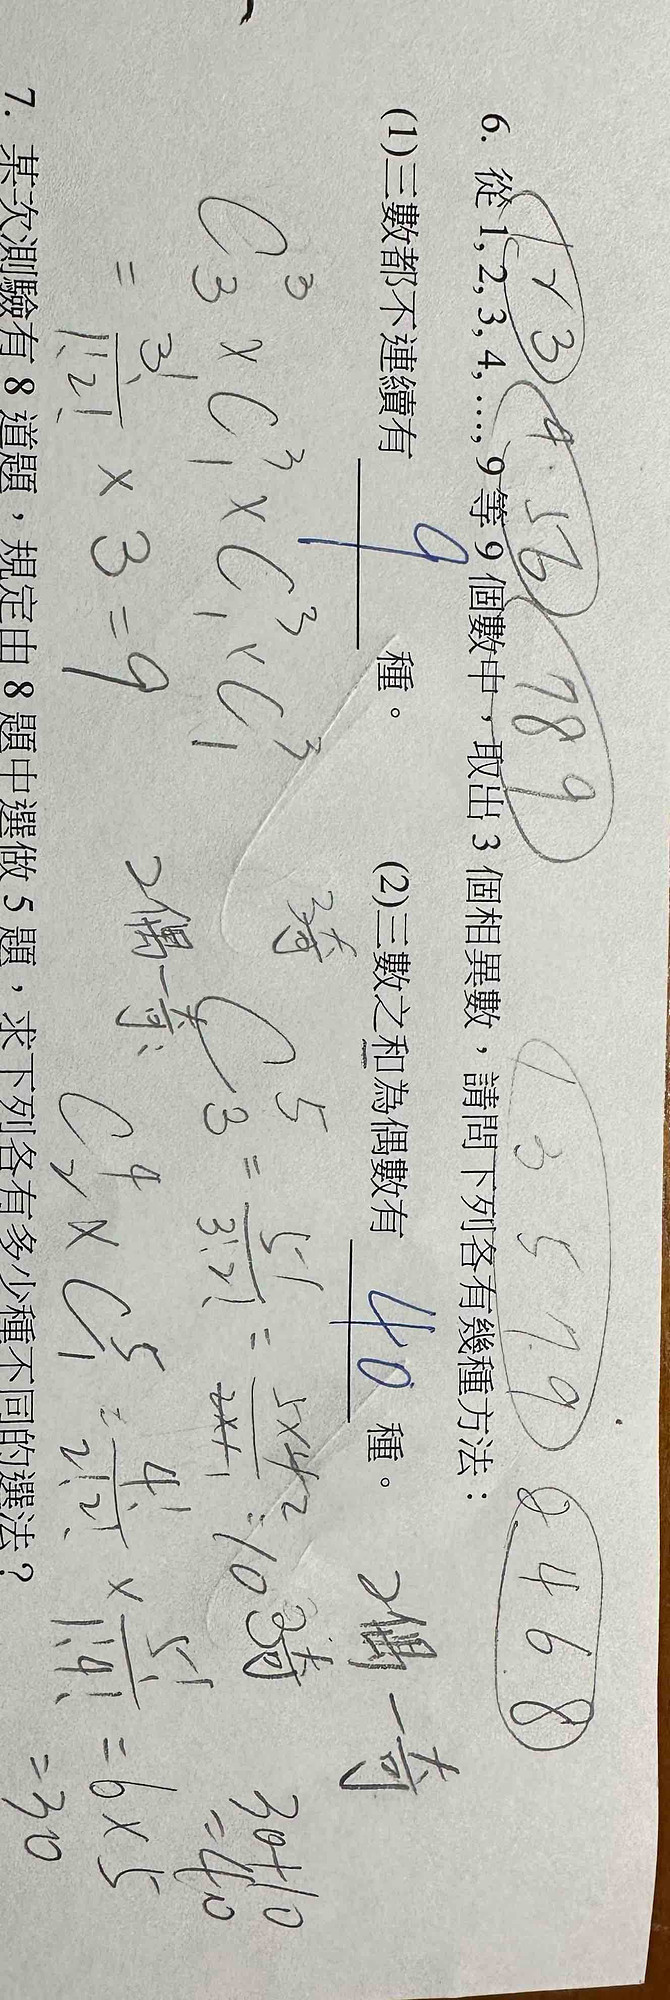 1 2 3 4 5 6 7 8 9 1 3 5 7 9 2 4 6 8
6. 從 1, 2, 3, 4, …, 9 等 9 個數中，取出 3 個相異數，請問下列各有幾種方法：
(1)三數都不連續有 9 種。 (2)三數之和為偶數有 40 種。 2偶一奇
C³₃ × C³₁ × C³₁ × C³₁
= 3!/1!2! × 3 = 9
3奇 C⁵₃ = 5!/3!2! = 5×4²/2×1 = 10 3奇 30+10
=40
2偶一奇 C⁴₂ × C⁵₁ = 4!/2!2! × 5!/1!4! = 6×5
=30
7. 某次測驗有 8 道題，規定由 8 題中選做 5 題，求下列各有多少種不同的選法？